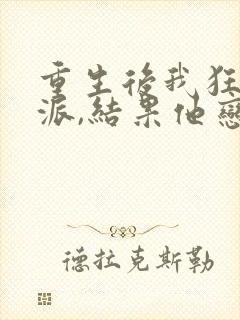 重生後我狂
派,結果他戀
德拉克斯勒